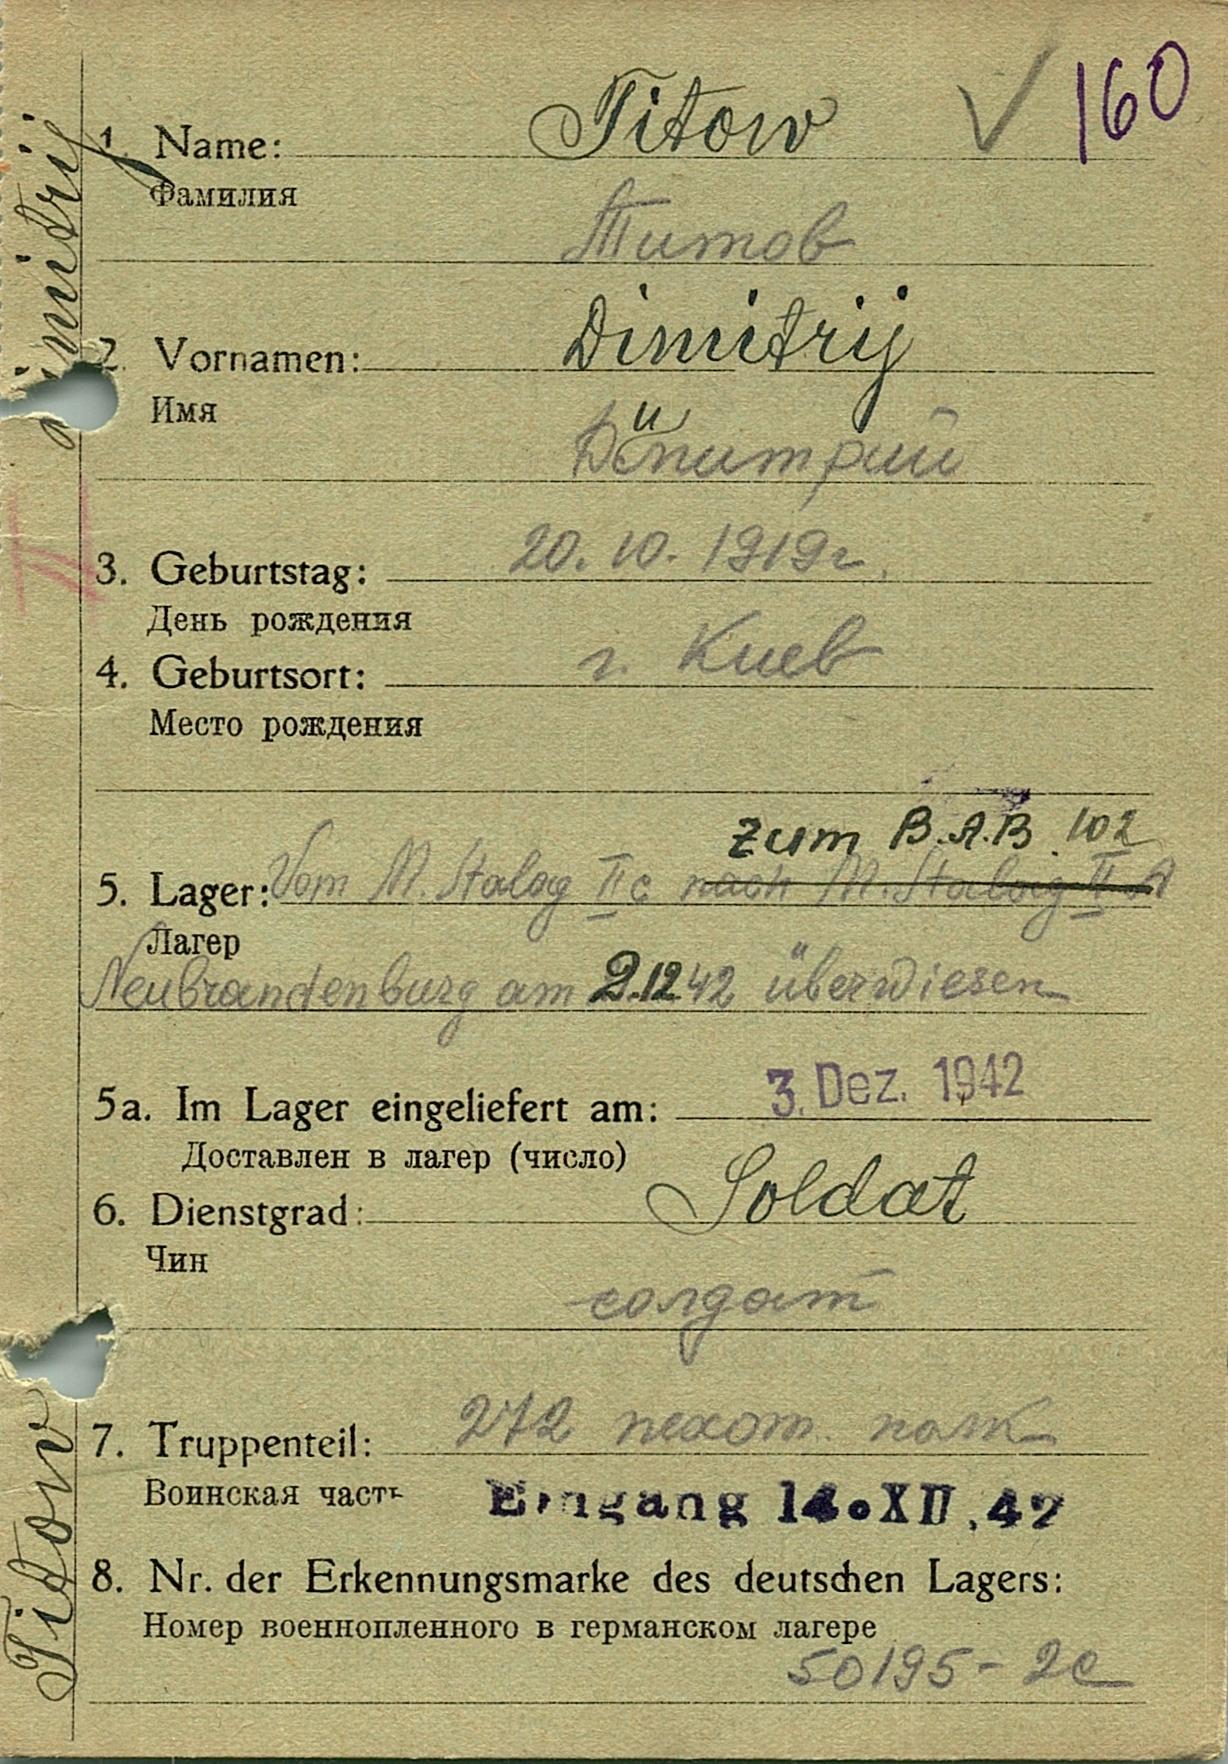 160
1. Name: Titow
Фамилия
Титов
2. Vornamen: Dimitrij
Имя
Димитрий
3. Geburtstag: 20. 10. 1919г.
День рождения
4. Geburtsort: г. Киев
Место рождения
zum B.A.B. 102
5. Lager: Vom M. Stalag II c nach M. Stalag II A
Лагер
Neubrandenburg am 2.12 42 überwiesen
5a. Im Lager eingeliefert am: 3. Dez. 1942
Доставлен в лагер (число)
6. Dienstgrad: Soldat
Чин
солдат
7. Truppenteil: 272 пехот. полк
Воинская часть
Eingang 14.XII.42
8. Nr. der Erkennungsmarke des deutschen Lagers:
Номер военнопленного в германском лагере
50195 - 2c
Titow Dimitrij